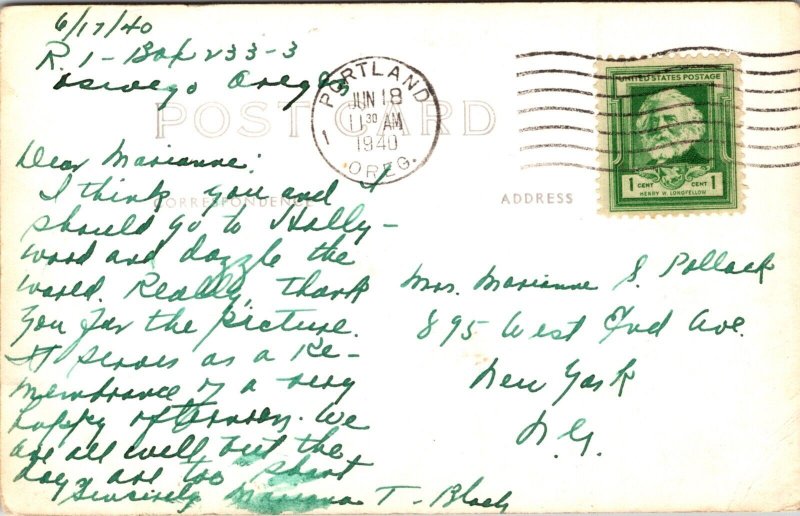 6/17/40
R. 1 - Box 233-3
Oswego Oregon
POST CARD
PORTLAND
JUN 18
11 30 AM
1940
OREG.
1
UNITED STATES POSTAGE
1 CENT CENT 1
HENRY W. LONGFELLOW
CORRESPONDENCE
ADDRESS
Dear Marianne:
I think you and I
should go to Holly-
wood and dazzle the
world. Really, thank
you for the picture.
It serves as a re-
membrance of a very
happy afternoon. We
are all well, but the
days are too short
Sincerely Mariana T - Bloch
Mrs. Marianne S. Pollack
895 West End Ave.
New York
N.Y.